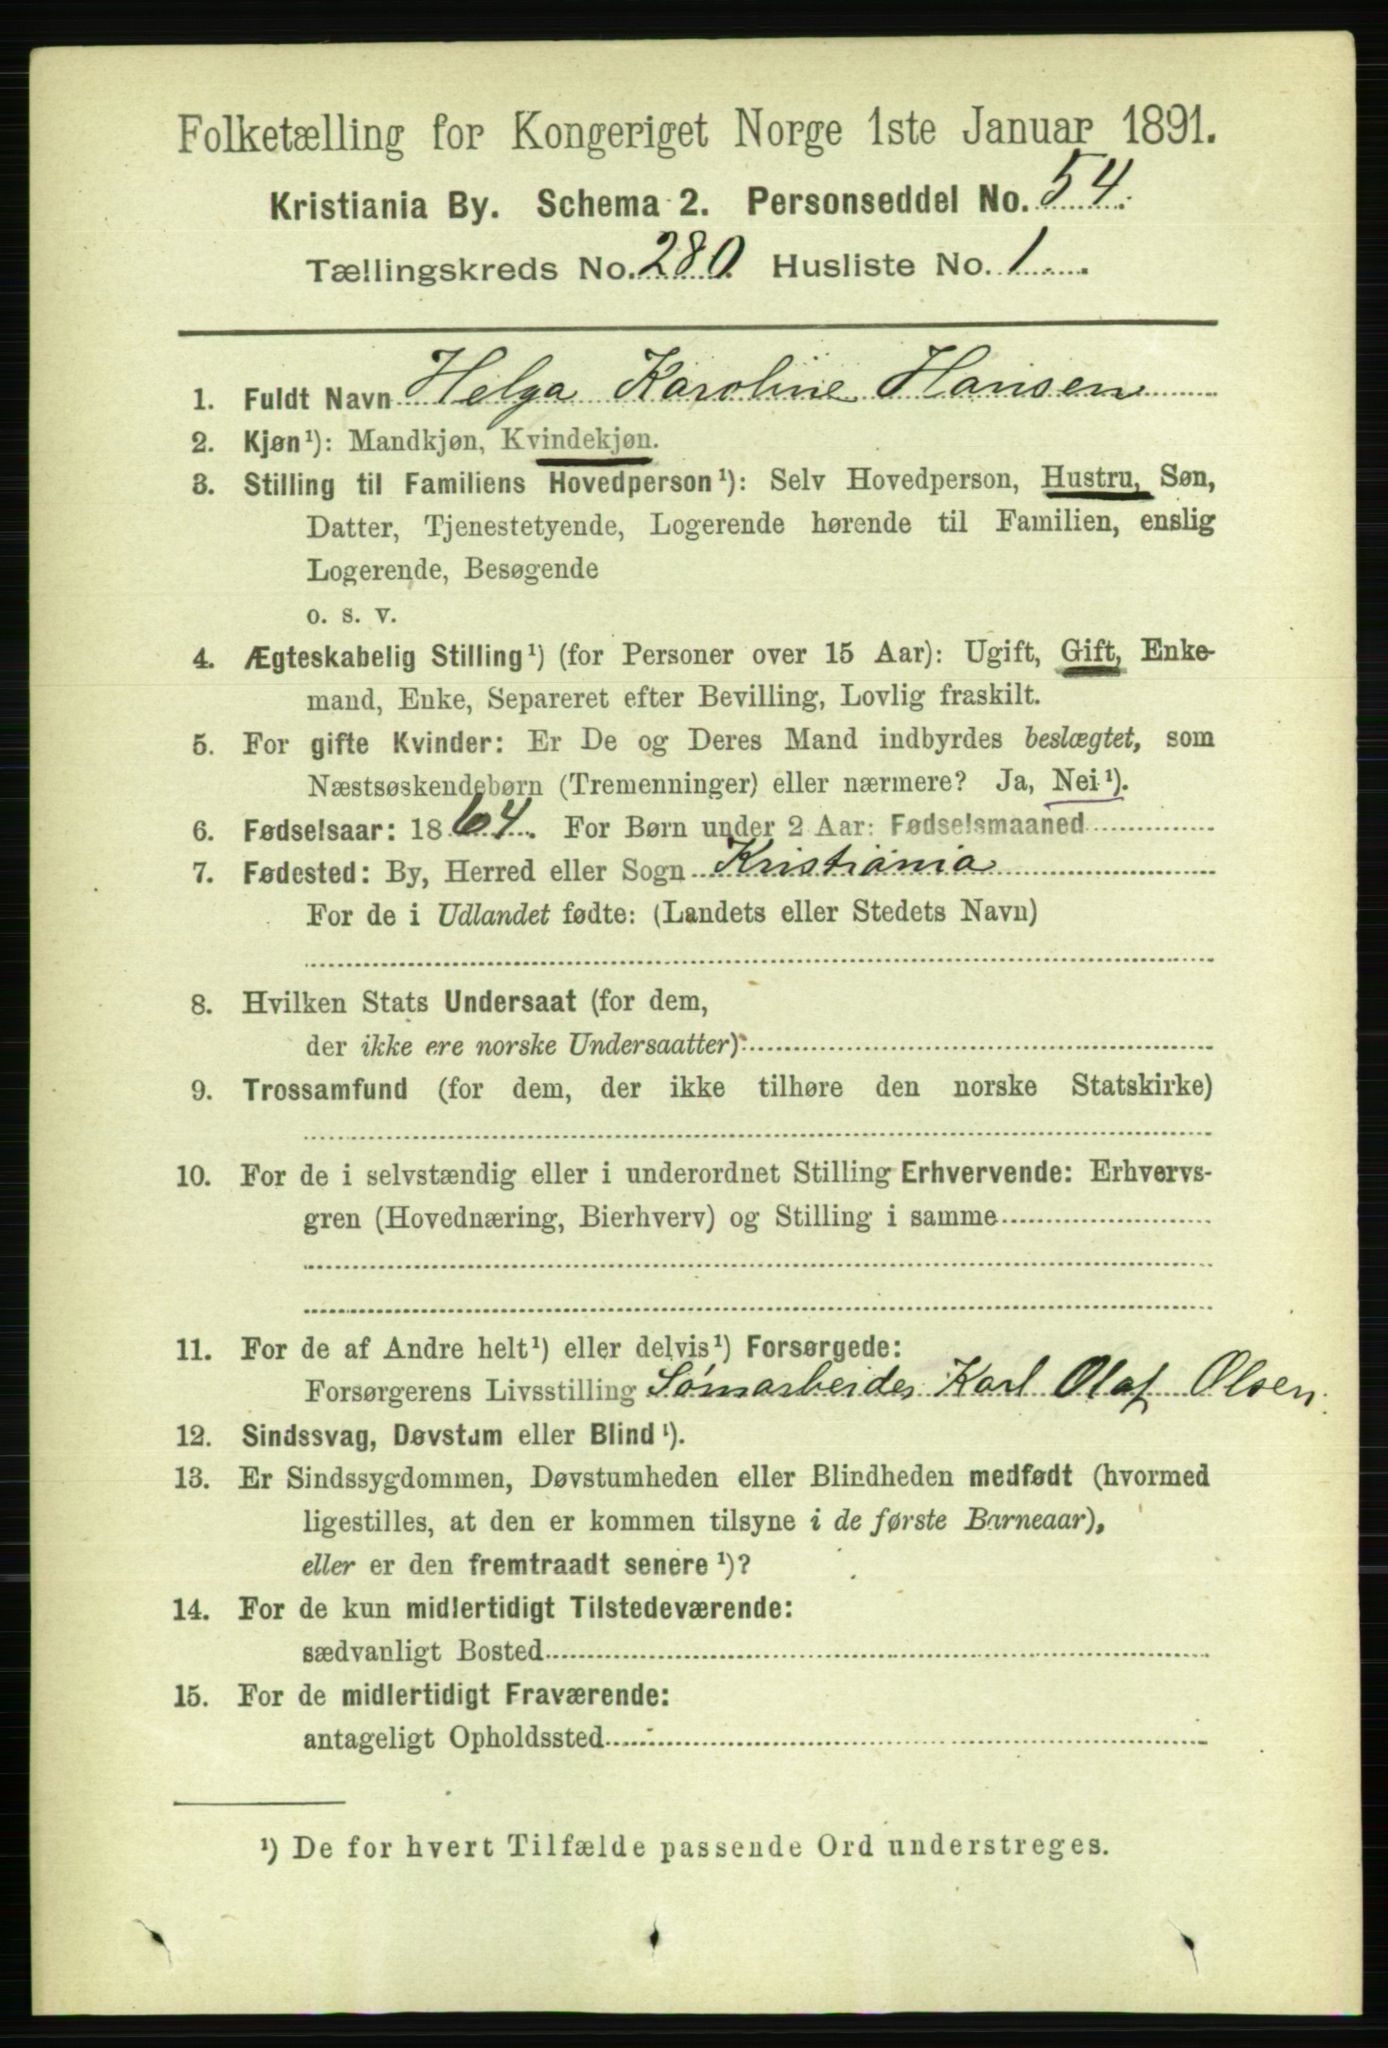 Folketælling for Kongeriget Norge 1ste Januar 1891.
Kristiania By. Schema 2. Personseddel No. 54.
Tællingskreds No. 280. Husliste No. 1
1. Fuldt Navn Helga Karoline Hansen
2. Kjøn¹): Mandkjøn, Kvindekjøn.
3. Stilling til Familiens Hovedperson¹): Selv Hovedperson, Hustru, Søn,
Datter, Tjenestetyende, Logerende hørende til Familien, enslig
Logerende, Besøgende
o. s. v.
4. Ægteskabelig Stilling¹) (for Personer over 15 Aar): Ugift, Gift, Enke-
mand, Enke, Separeret efter Bevilling, Lovlig fraskilt.
5. For gifte Kvinder: Er De og Deres Mand indbyrdes beslægtet, som
Næstsøskendebørn (Tremenninger) eller nærmere? Ja, Nei¹).
6. Fødselsaar: 1864. For Børn under 2 Aar: Fødselsmaaned
7. Fødested: By, Herred eller Sogn Kristiania
For de i Udlandet fødte: (Landets eller Stedets Navn)
8. Hvilken Stats Undersaat (for dem,
der ikke ere norske Undersaatter):
9. Trossamfund (for dem, der ikke tilhøre den norske Statskirke)
10. For de i selvstændig eller i underordnet Stilling Erhvervende: Erhvervs-
gren (Hovednæring, Bierhverv) og Stilling i samme
11. For de af Andre helt¹) eller delvis¹) Forsørgede:
Forsørgerens Livsstilling Sømarbeider Karl Olaf Olsen.
12. Sindssvag, Døvstum eller Blind¹).
13. Er Sindssygdommen, Døvstumheden eller Blindheden medfødt (hvormed
ligestilles, at den er kommen tilsyne i de første Barneaar),
eller er den fremtraadt senere¹)?
14. For de kun midlertidigt Tilstedeværende:
sædvanligt Bosted
15. For de midlertidigt Fraværende:
antageligt Opholdssted
¹) De for hvert Tilfælde passende Ord understreges.